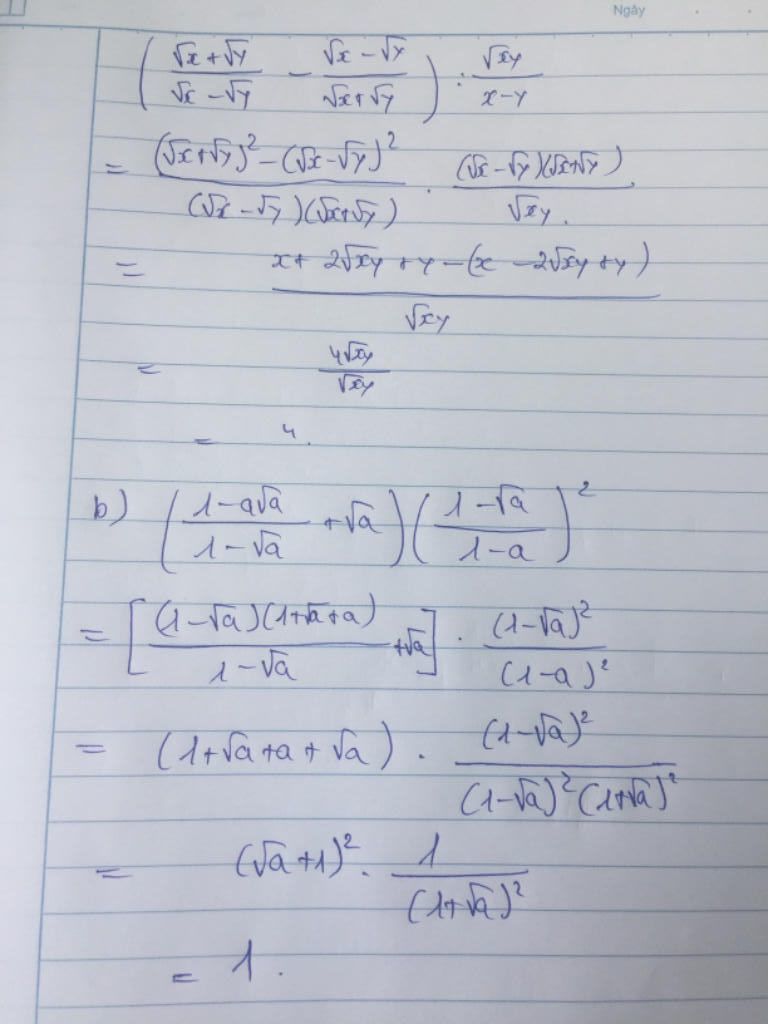 Ngày
( (√x + √y)/(√x - √y) - (√x - √y)/(√x + √y) ) : √xy/(x - y)
= ((√x+√y)² - (√x - √y)²)/((√x - √y)(√x+√y)) . ((√x - √y)(√x+√y))/√xy.
= (x + 2√xy + y - (x - 2√xy + y))/√xy
= 4√xy/√xy
= 4.
b) ( (1 - a√a)/(1 - √a) + √a ) ( (1 - √a)/(1 - a) )²
= [ ((1 - √a)(1+√a+a))/(1 - √a) + √a ] . (1 - √a)²/(1 - a)²
= (1+√a+a+√a) . (1 - √a)²/((1 - √a)²(1+√a)²)
= (√a + 1)² . 1/(1+√a)²
= 1.